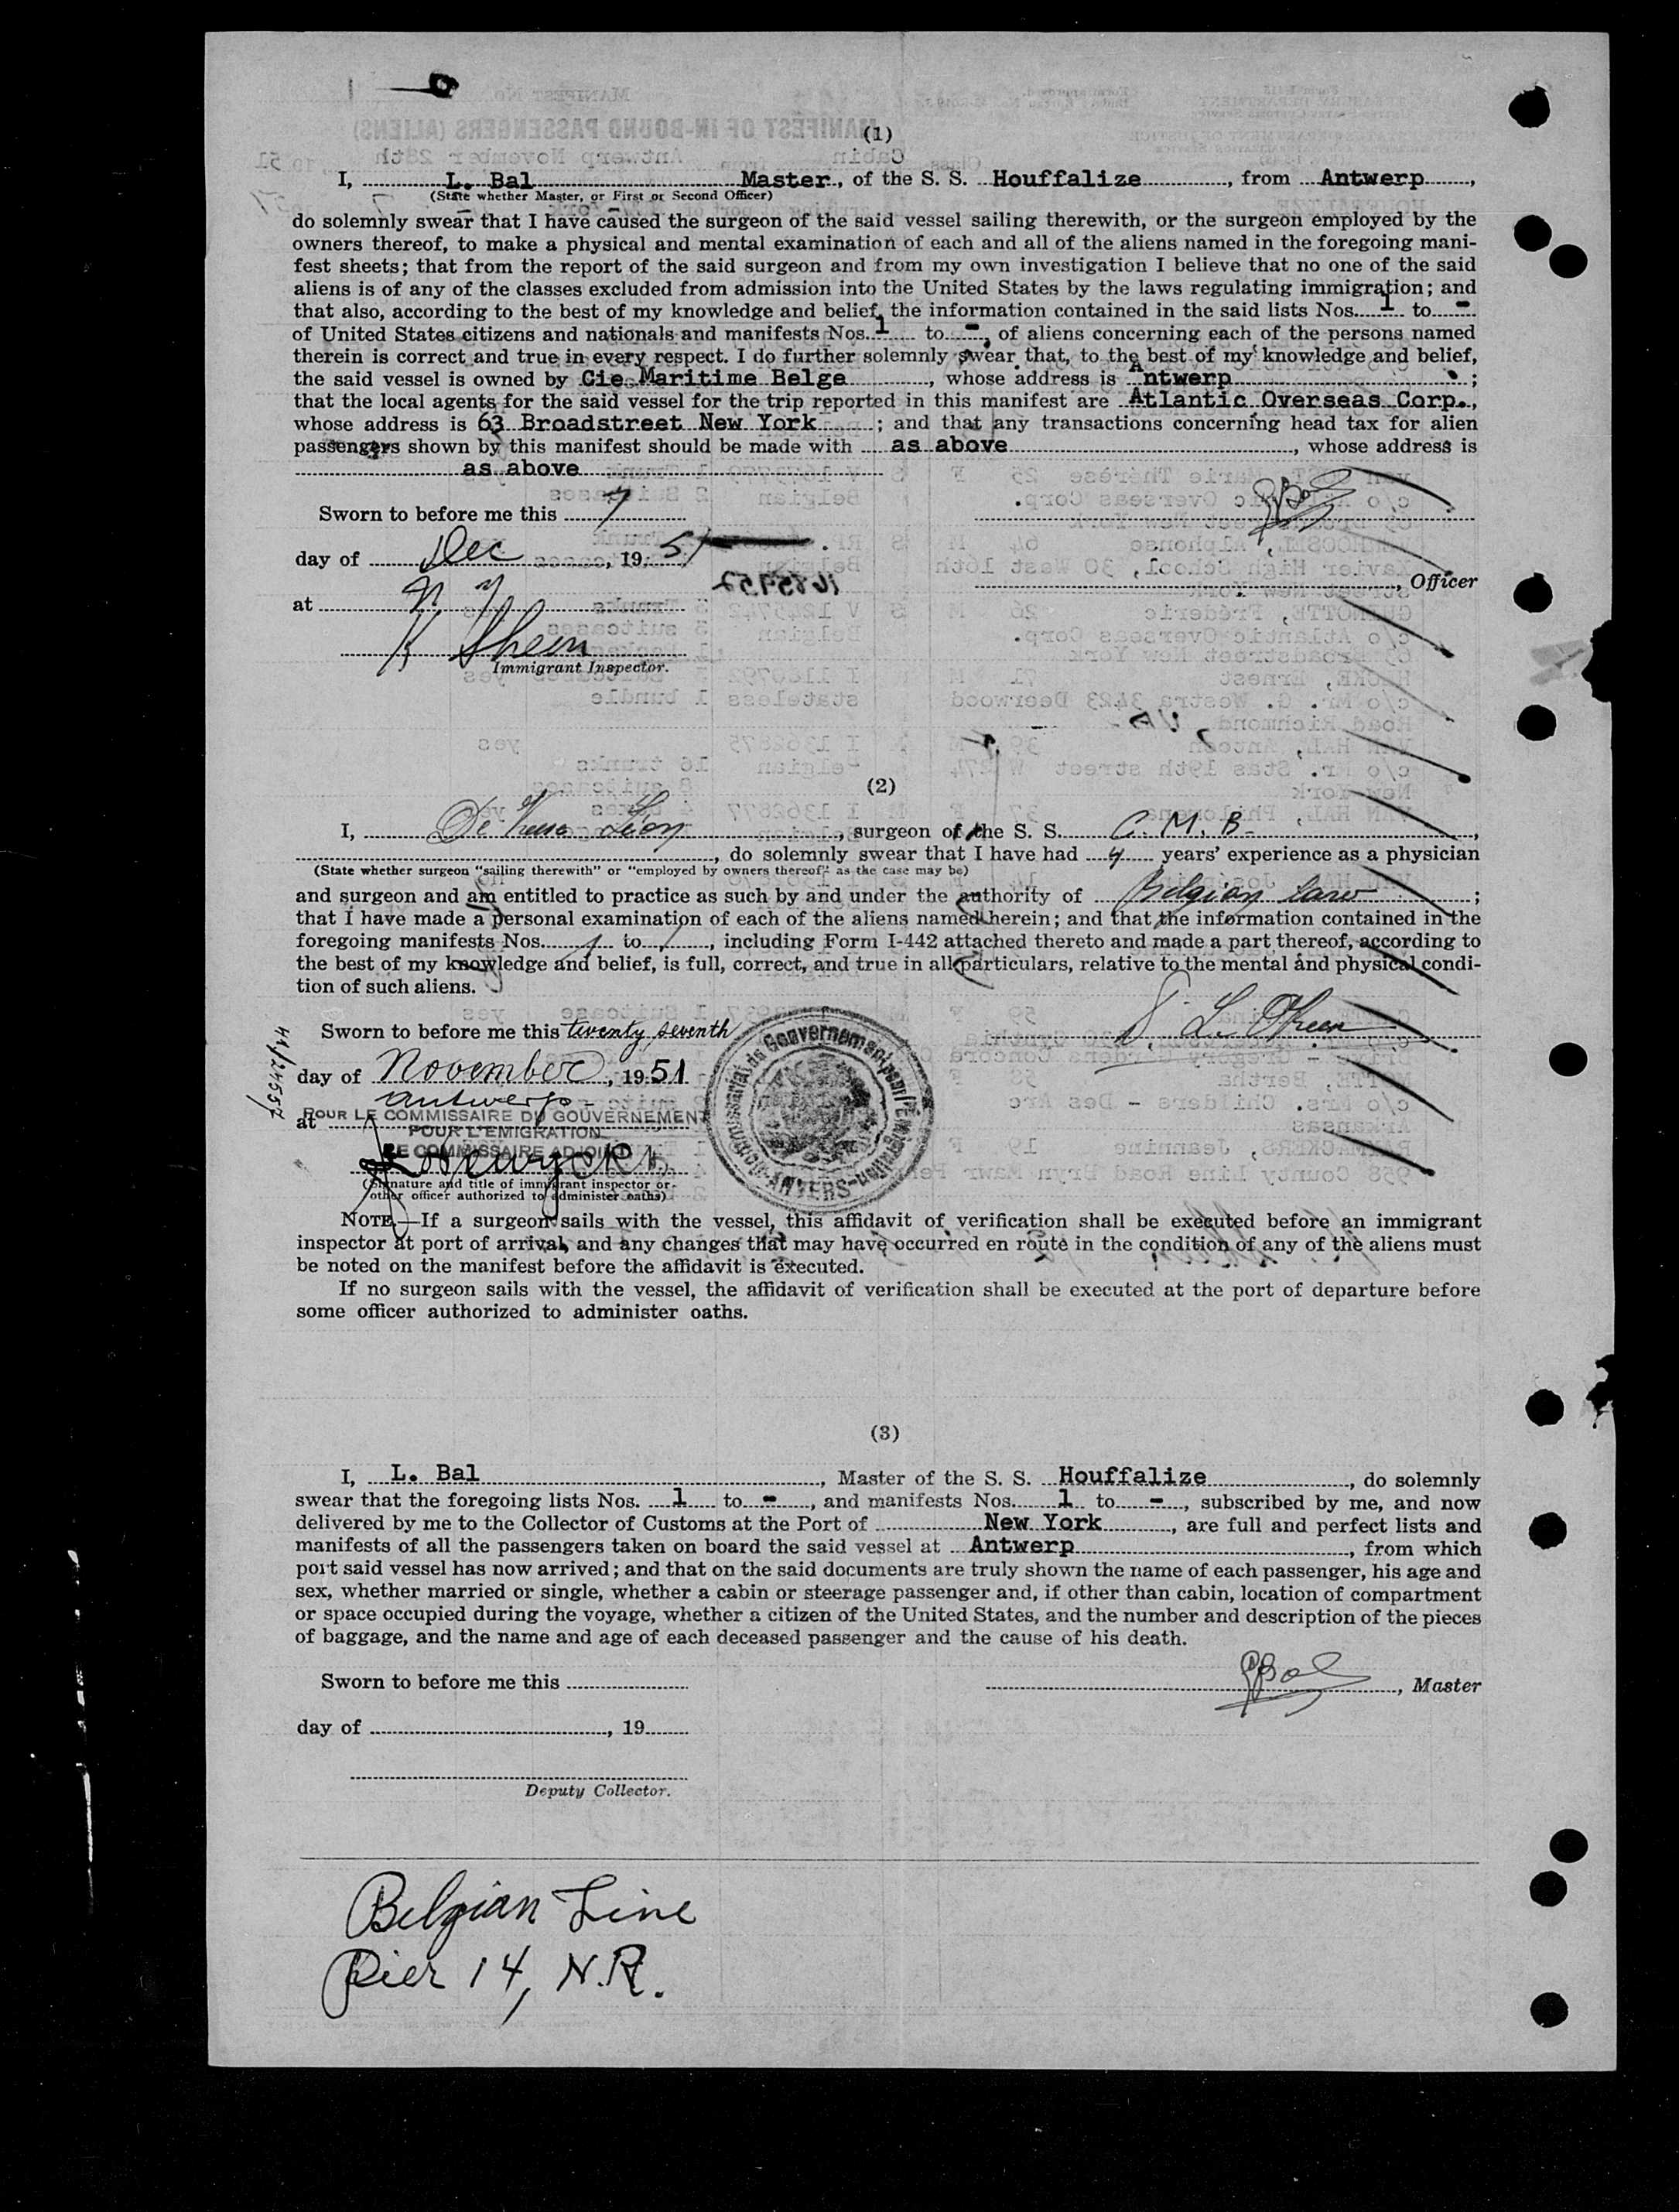 (1)
I, L. Bal Master, of the S. S. Houffalize, from Antwerp,
(State whether Master, or First or Second Officer)
do solemnly swear that I have caused the surgeon of the said vessel sailing therewith, or the surgeon employed by the
owners thereof, to make a physical and mental examination of each and all of the aliens named in the foregoing mani-
fest sheets; that from the report of the said surgeon and from my own investigation I believe that no one of the said
aliens is of any of the classes excluded from admission into the United States by the laws regulating immigration; and
that also, according to the best of my knowledge and belief, the information contained in the said lists Nos. 1 to -
of United States citizens and nationals and manifests Nos. 1 to -, of aliens concerning each of the persons named
therein is correct and true in every respect. I do further solemnly swear that, to the best of my knowledge and belief,
the said vessel is owned by Cie. Maritime Belge, whose address is Antwerp. ;
that the local agents for the said vessel for the trip reported in this manifest are Atlantic Overseas Corp.,
whose address is 63 Broadstreet New York; and that any transactions concerning head tax for alien
passengers shown by this manifest should be made with as above, whose address is
as above
Sworn to before me this 7
day of Dec, 1951
, Officer
at N Y
K Sheen
Immigrant Inspector.
(2)
I, De Leon, surgeon of the S. S. C. M. B.,
, do solemnly swear that I have had 4 years' experience as a physician
(State whether surgeon "sailing therewith" or "employed by owners thereof" as the case may be)
and surgeon and am entitled to practice as such by and under the authority of Belgian law ;
that I have made a personal examination of each of the aliens named herein; and that the information contained in the
foregoing manifests Nos. 1 to 1, including Form I-442 attached thereto and made a part thereof, according to
the best of my knowledge and belief, is full, correct, and true in all particulars, relative to the mental and physical condi-
tion of such aliens.
Sworn to before me this twenty seventh
day of November, 1951
at Antwerp
POUR LE COMMISSAIRE DU GOUVERNEMENT
POUR L'EMIGRATION
LE COMMISSAIRE ADJOINT
(Signature and title of immigrant inspector or
other officer authorized to administer oaths)
NOTE.—If a surgeon sails with the vessel, this affidavit of verification shall be executed before an immigrant
inspector at port of arrival, and any changes that may have occurred en route in the condition of any of the aliens must
be noted on the manifest before the affidavit is executed.
If no surgeon sails with the vessel, the affidavit of verification shall be executed at the port of departure before
some officer authorized to administer oaths.
(3)
I, L. Bal, Master of the S. S. Houffalize, do solemnly
swear that the foregoing lists Nos. 1 to -, and manifests Nos. 1 to -, subscribed by me, and now
delivered by me to the Collector of Customs at the Port of New York, are full and perfect lists and
manifests of all the passengers taken on board the said vessel at Antwerp, from which
port said vessel has now arrived; and that on the said documents are truly shown the name of each passenger, his age and
sex, whether married or single, whether a cabin or steerage passenger and, if other than cabin, location of compartment
or space occupied during the voyage, whether a citizen of the United States, and the number and description of the pieces
of baggage, and the name and age of each deceased passenger and the cause of his death.
Sworn to before me this
Bal, Master
day of , 19
Deputy Collector.
Belgian Line
Pier 14, N.R.